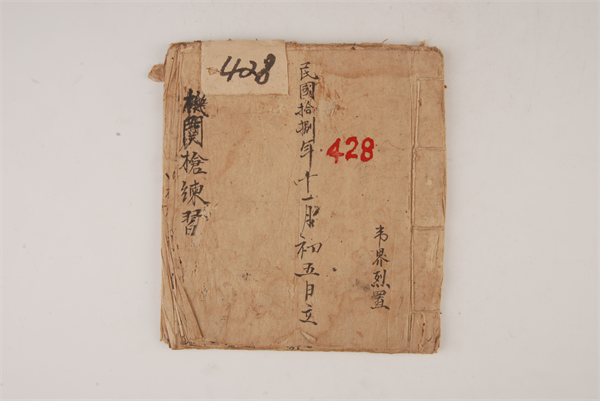 428
民國拾捌年十一月初五日立
428
韦界烈置
機関槍練習